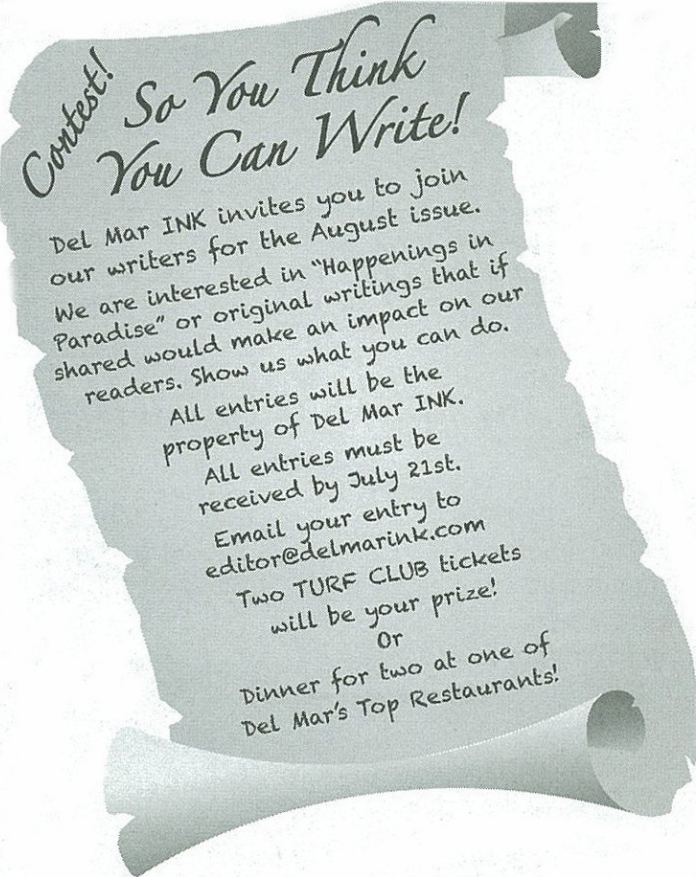 Contest!
So You Think
You Can Write!
Del Mar INK invites you to join
our writers for the August issue.
We are interested in "Happenings in
Paradise" or original writings that if
shared would make an impact on our
readers. Show us what you can do.
All entries will be the
property of Del Mar INK.
All entries must be
received by July 21st.
Email your entry to
editor@delmarink.com
Two TURF CLUB tickets
will be your prize!
Or
Dinner for two at one of
Del Mar's Top Restaurants!